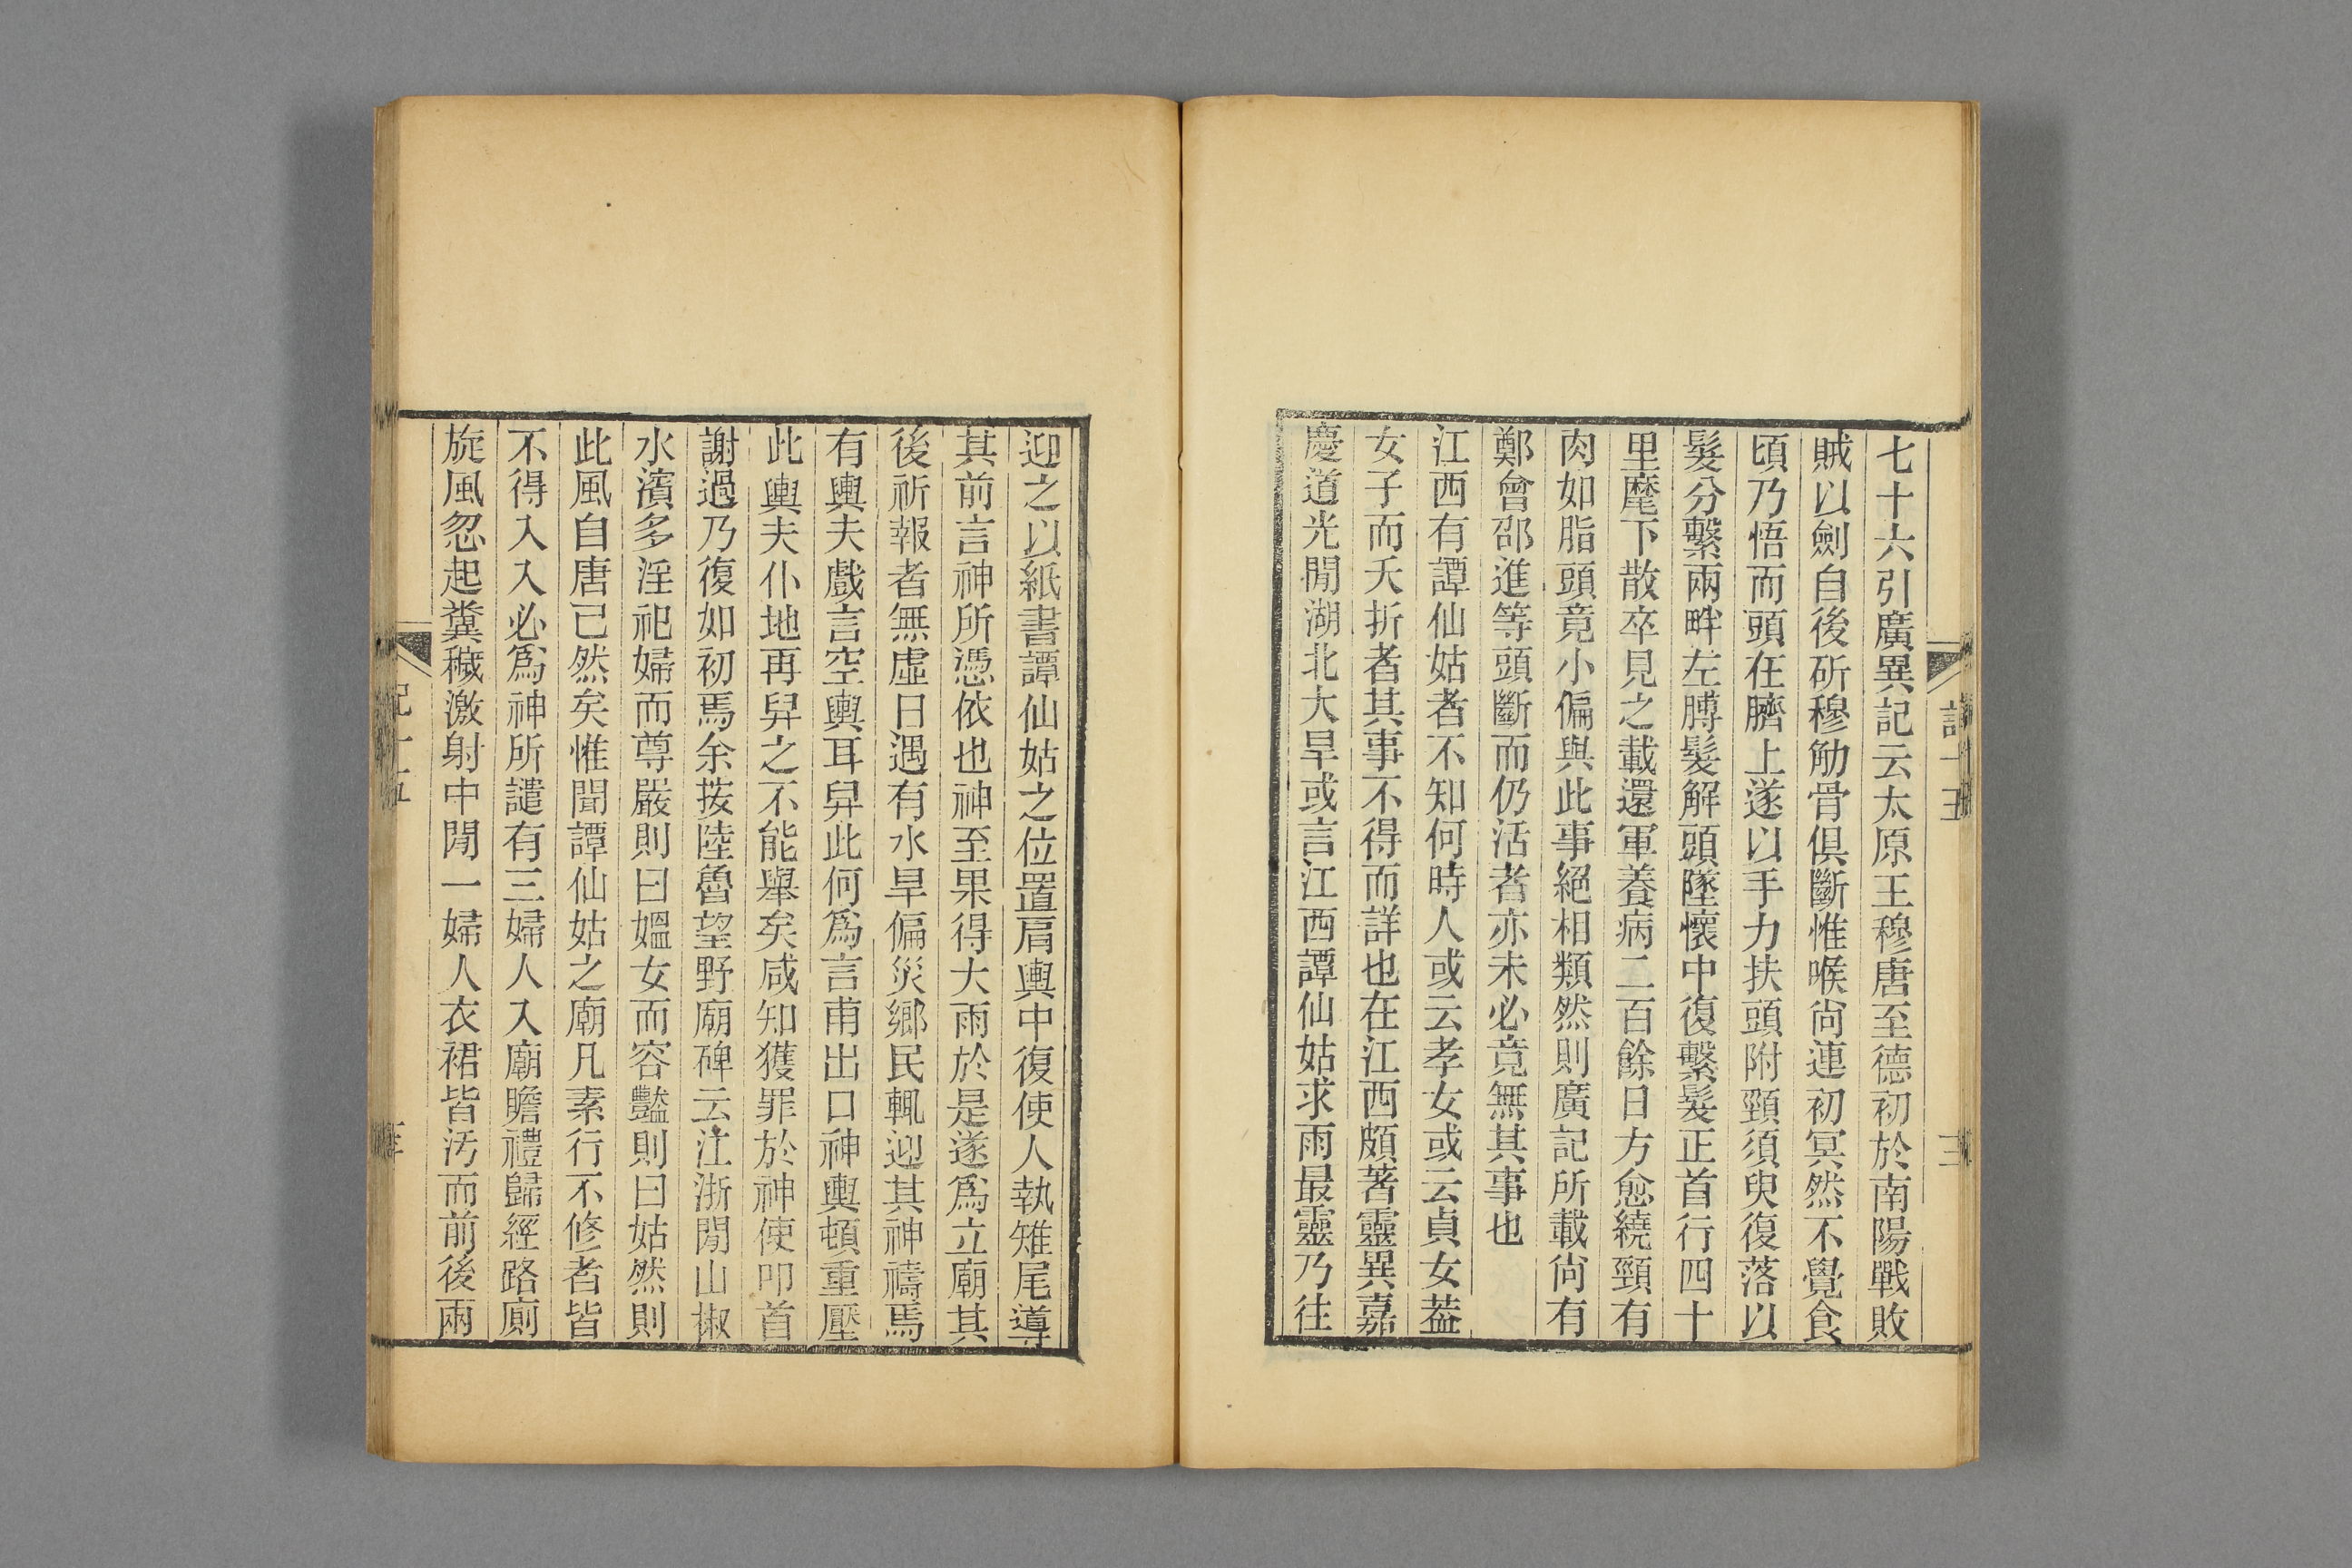 七十六引廣異記云太原王穆唐至德初於南陽戰敗
賊以劍自後斫穆觔骨俱斷惟喉尙連初冥然不覺食
頃乃悟而頭在臍上遂以手力扶頭附頸須臾復落以
髮分繫兩畔左膊髮解頭墜懷中復繫髮正首行四十
里麾下散卒見之載還軍養病二百餘日方愈繞頸有
肉如脂頭竟小偏與此事絕相類然則廣記所載尙有
鄭會邵進等頭斷而仍活者亦未必竟無其事也
江西有譚仙姑者不知何時人或云孝女或云貞女葢
女子而夭折者其事不得而詳也在江西頗著靈異嘉
慶道光閒湖北大旱或言江西譚仙姑求雨最靈乃往
迎之以紙書譚仙姑之位置肩輿中復使人執雉尾導
其前言神所憑依也神至果得大雨於是遂爲立廟其
後祈報者無虛日遇有水旱偏災鄉民輒迎其神禱焉
有輿夫戲言空輿耳舁此何爲言甫出口神輿頓重壓
此輿夫仆地再舁之不能舉矣咸知獲罪於神使叩首
謝過乃復如初焉余按陸魯望野廟碑云江浙閒山椒
水濱多淫祀婦而尊嚴則曰媼女而容豔則曰姑然則
此風自唐已然矣惟聞譚仙姑之廟凡素行不修者皆
不得入入必爲神所譴有三婦人入廟瞻禮歸經路廁
旋風忽起糞穢激射中閒一婦人衣裙皆汚而前後兩
記十五